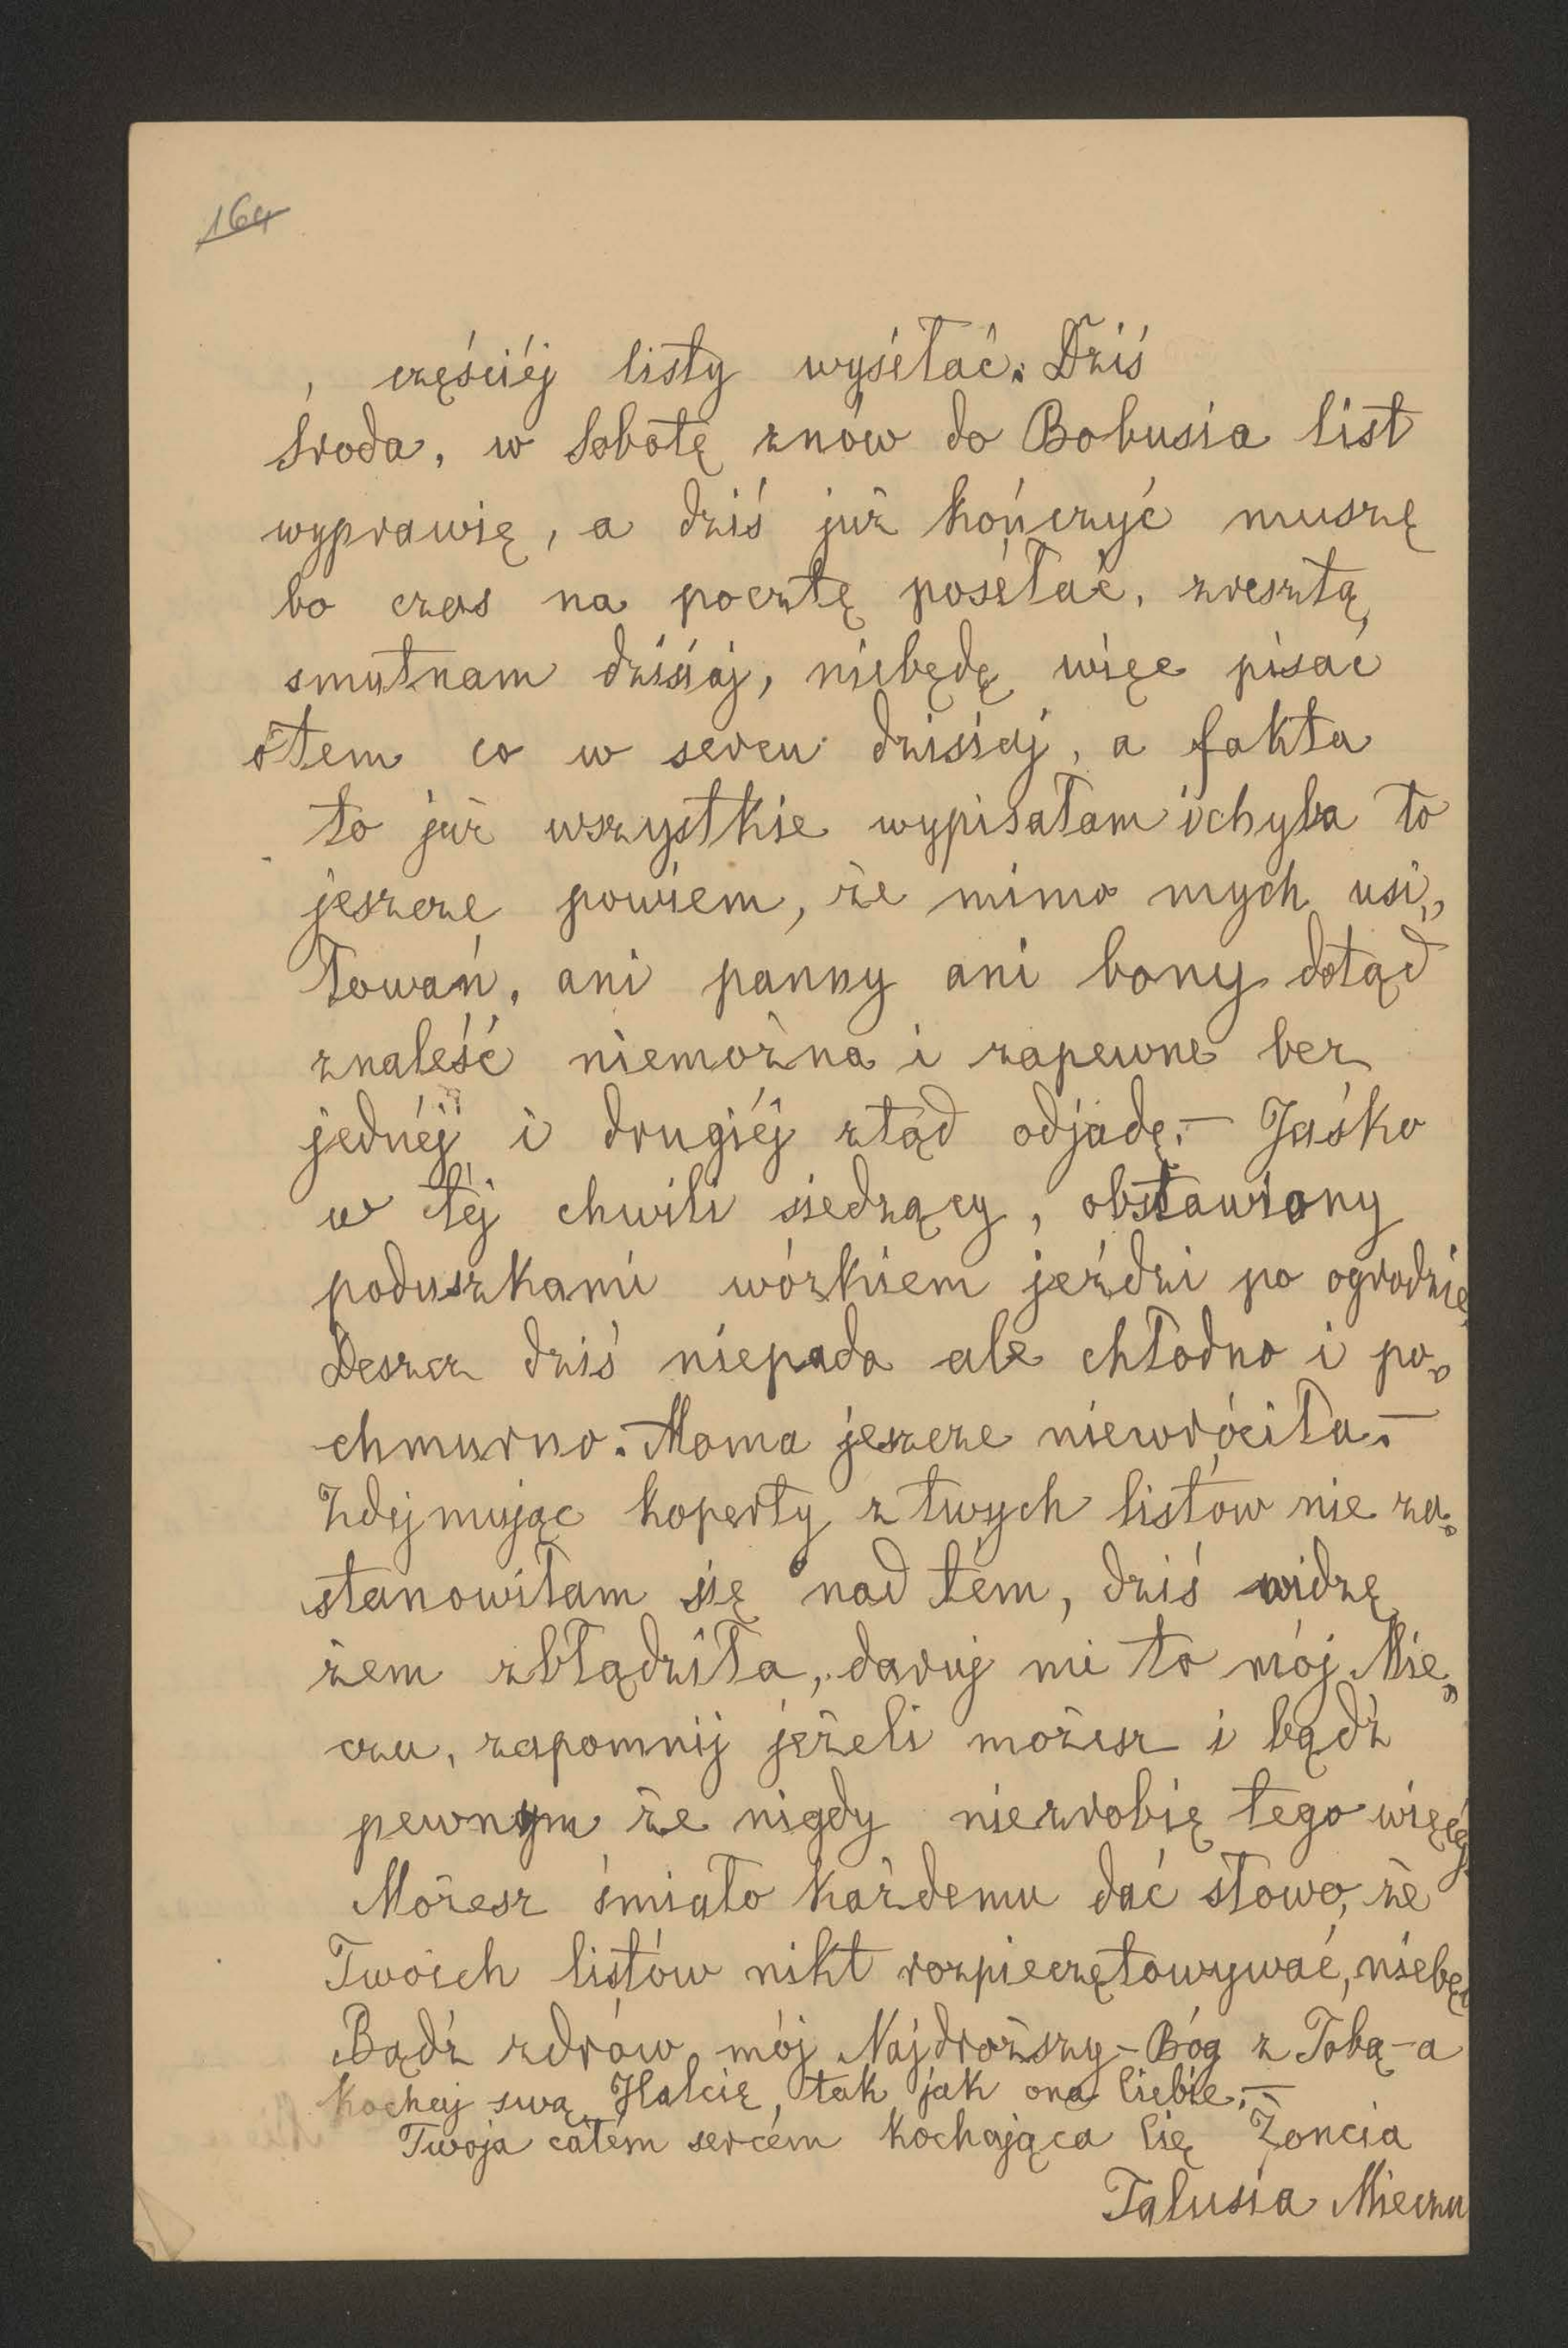 164
, częściéj listy wyséłać. Dziś
środa, w sobotę znów do Bobusia list
wyprawię, a dziś już kończyć muszę
bo czas na pocztę poséłać, zresztą
smutnam dzisiaj, niebędę więc pisać
otem co w sercu dzisiaj, a fakta
to już wszystkie wypisałam ichyba to
jeszcze powiem, że mimo mych usi„
łowań, ani panny ani bony dotąd
znaleść niemożna i zapewne bez
jednéj i drugiéj ztąd odjadę.— Jaśko
w téj chwili siedzący, obstawiony
poduszkami wózkiem jeździ po ogrodzie,
Deszcz dziś niepada ale chłodno i po„
chmurno. Mama jeszcze niewróciła.—
Zdejmując koperty z twych listów nie za„
stanowiłam się nad tém, dziś widzę
żem zbłądziła, daruj mi to mój Mie„
czu, zapomnij jeżeli możesz i bądź
pewnym że nigdy niezrobię tego więcéj
Możesz śmiało każdemu dać słowo, że
Twoich listów nikt rozpieczętowywać, niebę
Bądź zdrów mój Najdroższy – Bóg z Tobą – a
kochaj swą Halcię, tak jak ona Ciebie.—
Twoja całém sercém kochająca Cię Żoncia
Talusia Mieczu